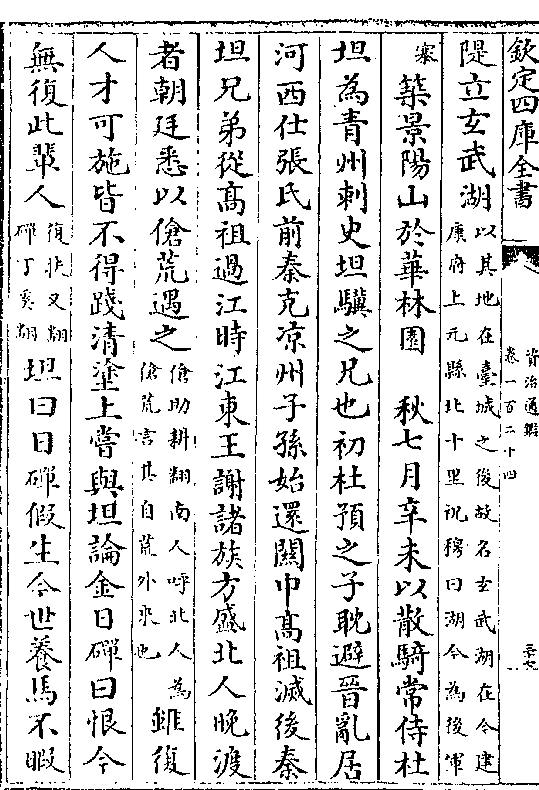 欽定四庫全書
資治通鑑
卷一百二十四
隄立玄武湖以其地在臺城之後故名玄武湖在今建
康府上元縣北十里祝穆曰湖今為後軍
寨築景陽山於華林園　秋七月辛未以散騎常侍杜
坦為青州刺史坦驥之兄也初杜預之子耽避晉亂居
河西仕張氏前秦克凉州子孫始還關中髙祖滅後秦
坦兄弟從髙祖過江時江東王謝諸族方盛北人晚渡
者朝廷悉以傖荒遇之傖助耕翻南人呼北人為
傖荒言其自荒外來也雖復
人才可施皆不得踐清塗上嘗與坦論金日磾曰恨今
無復此輩人復扶又翻
磾丁奚翻坦曰日磾假生今世養馬不暇